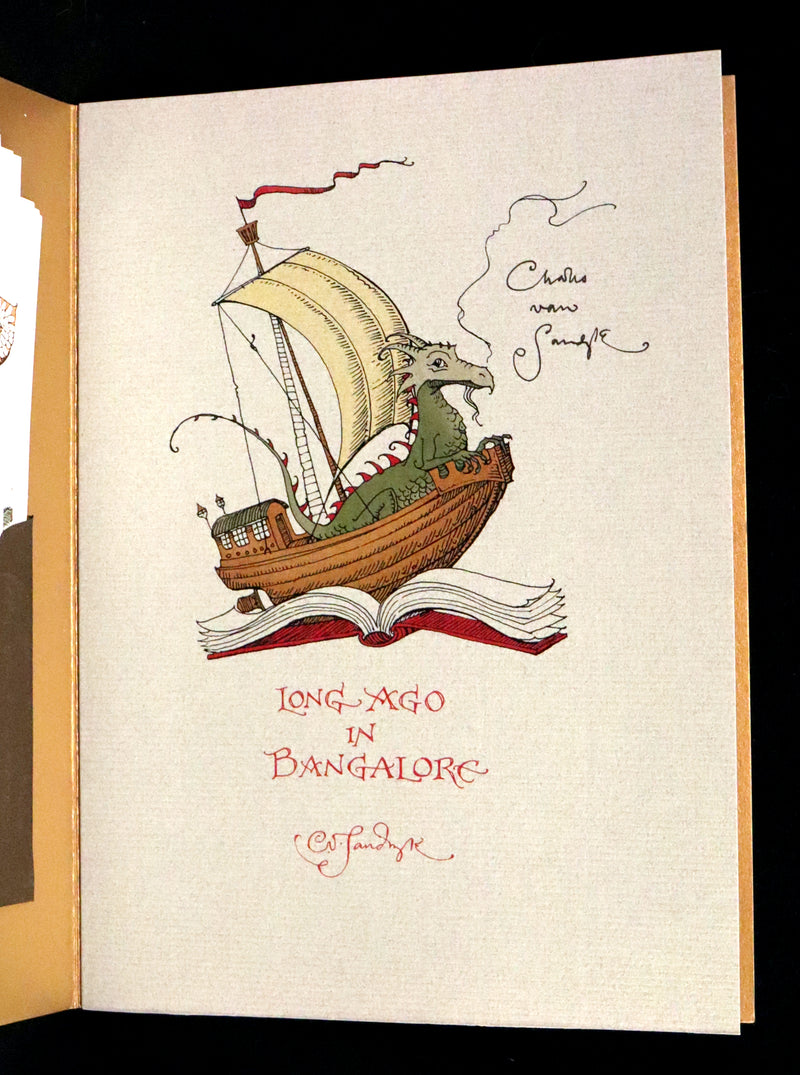 Charles
van
Sandwyk
LONG AGO
IN
BANGALORE
C.v. Sandwyk